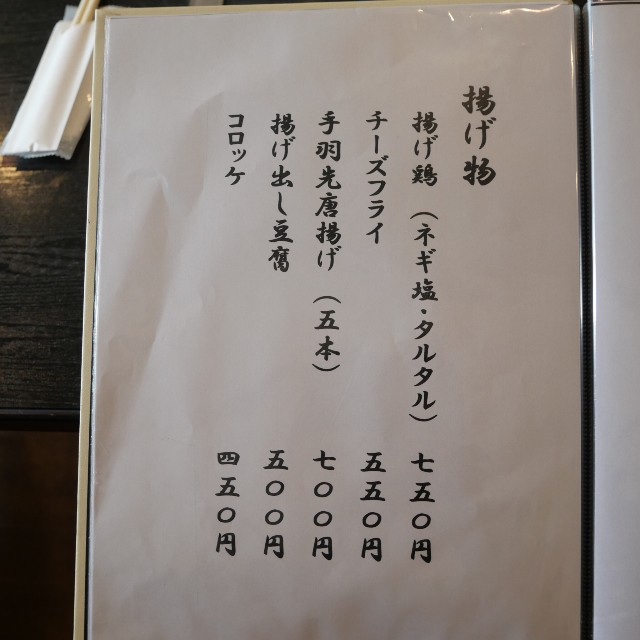 揚げ物
揚げ鶏（ネギ塩・タルタル） 七五〇円
チーズフライ 五五〇円
手羽先唐揚げ（五本） 七〇〇円
揚げ出し豆腐 五〇〇円
コロッケ 四五〇円